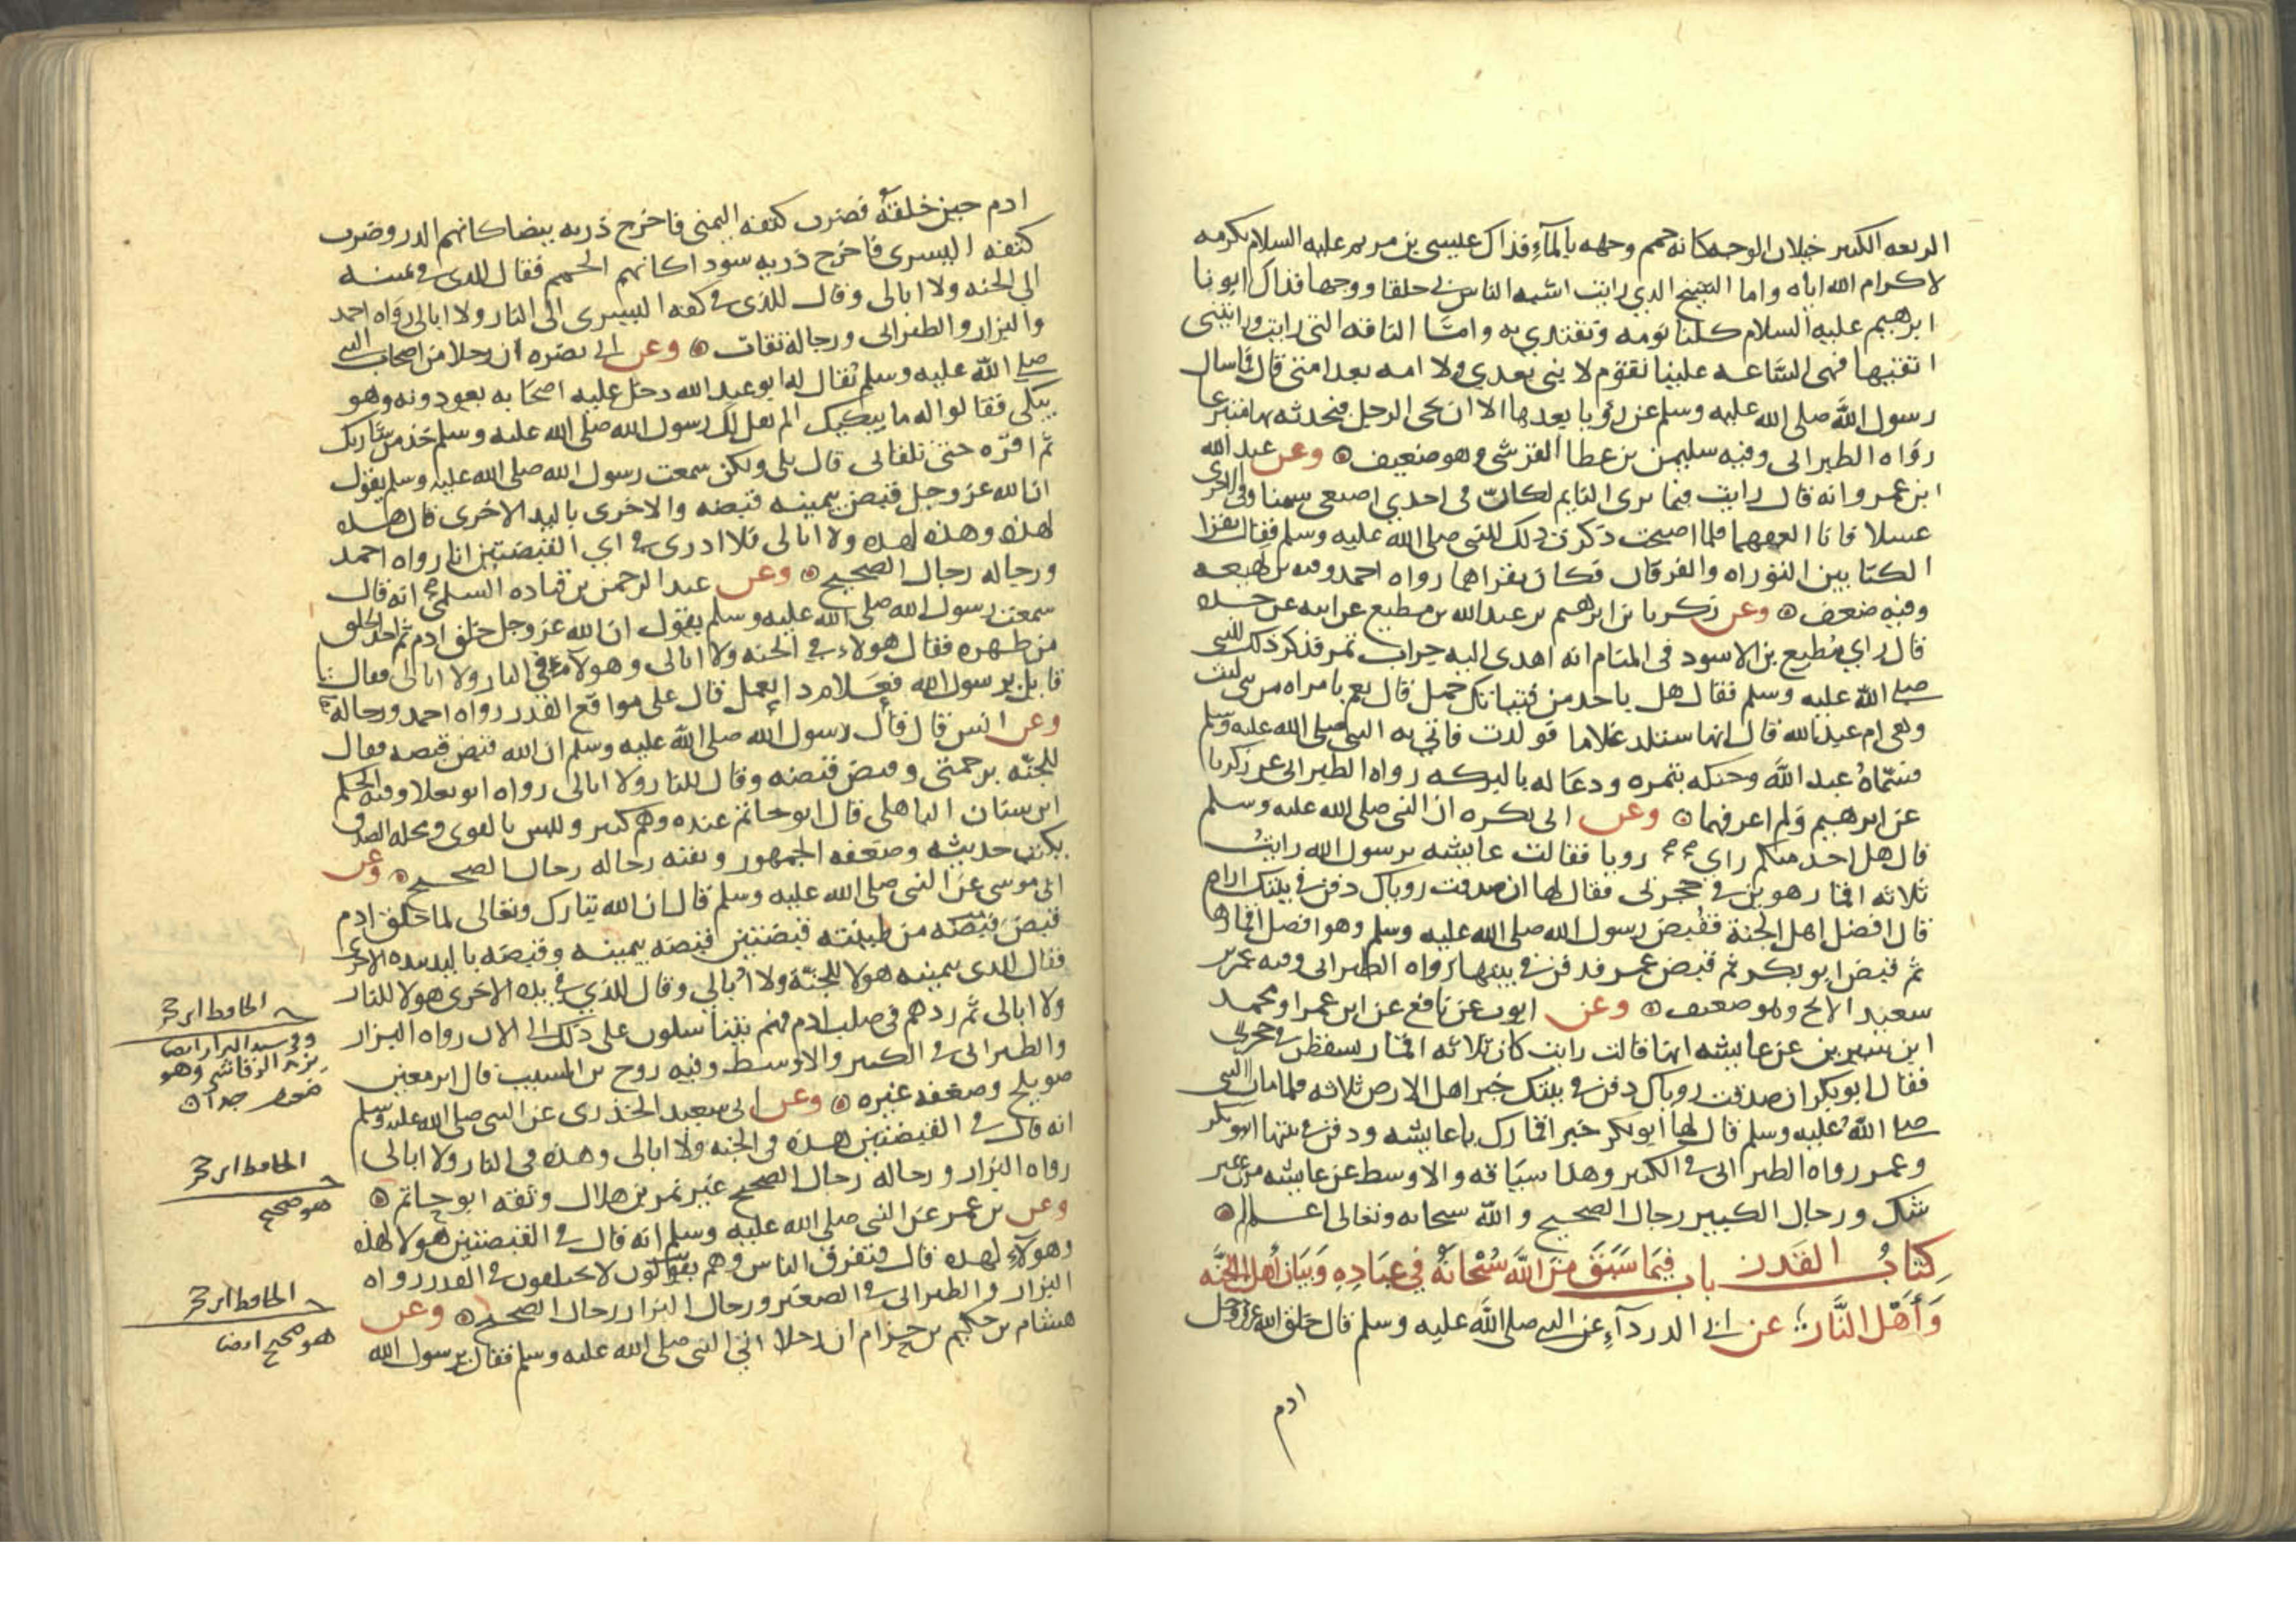 الربعه الكثير خيلان الوجه كانه حمم وجهه بالماء فذاك عيسى بن مريم عليه السلام نكرمه
لاكرام الله اياه واما الشيخ الذي رايت اشبه الناس بي خلقا ووجها فذاك ابونا
ابرهيم عليه السلام كلنا نومه ونقتدي به وامّا الناقه التي رايت ورايتني
اتقيها فهي السّاعه علينا تقوم لا نبي بعدي ولا امه بعد امتي قال فما سال
رسول الله صلى الله عليه وسلم عن رؤيا بعدها الا ان يجي الرجل فيحدثه بها متبرعا
رواه الطبراني وفيه سليمن بن عطا القرشي وهو ضعيف وعن عبد الله
ابن عمرو انه قال رايت فيما يرى النايم لكانّ في احدي اصبعي سمنا وفي الاخرى
عسلا فانا العقهما فلما اصبحت ذكرت ذلك للنبي صلى الله عليه وسلم فقال تقرا
الكتابين التوراه والفرقان فكان يقراهما رواه احمد وفيه بن لهيعه
وفيه ضعف وعن زكريا بن ابرهيم بن عبد الله بن مطيع عن ابيه عن جده
قال راي مُطيع بن الاسود في المنام انه اهدي اليه جراب تمر فذكر ذلك للنبي
صلى الله عليه وسلم فقال هل باحد من فتياتك حمل قال نعم بامراه من بني ليث
وهي ام عبد الله قال انها ستلد غلاما فولدت فاتي به النبي صلى الله عليه وسلم
فسمّاهُ عبد الله وحنكه بتمره ودعا له بالبركه رواه الطبراني عن زكريا
عن ابرهيم ولم اعرفهما وعن ابي بكره ان النبي صلى الله عليه وسلم
قال هل احد منكم راي رويا فقالت عايشه يرسول الله رايتُ
ثلاثه اقمار هوين في حجرتي فقال لها ان صدقت روياك دفن في بيتك اراه
قال افضل اهل الجنة فقُبض رسول الله صلى الله عليه وسلم وهو افضل اقمارها
ثم قبض ابو بكر ثم قبض عمر فدفن في بيتها رواه الطبراني وفيه عمر بن
سعيد الابح وهو ضعيف وعن ايوب عن نافع عن ابن عمر او محمد
ابن سيرين عن عايشه انها قالت رايت كان ثلاثه اقمار سقطن في حجرتي
فقال ابو بكر ان صدقت روياك دفن في بيتك خير اهل الارض ثلاثه فلما مات النبي
صلى الله عليه وسلم قال لها ابو بكر خير اقمارك يا عايشه ودفن في بيتها ابو بكر
وعمر رواه الطبراني في الكبير وهذا سياقه والاوسط عن عايشه من غير
شك ورجال الكبير رجال الصحيح والله سبحانه وتعالى اعلم
كِتَابُ القَدر باب فيمَا سَبَقَ مِنَ اللَّه سُبْحَانَهُ فِي عِبَادِهِ وَبَيَان أَهْل الجَنَّه
وَأَهْل النَّار عن ابي الدرداء عن النبي صلى الله عليه وسلم قال خلق الله عز وجل
ادم
ادم حين خلقهُ فضرب كتفه اليمنى فاخرج ذريه بيضا كانهم الدر وضرب
كتفه اليسرى فاخرج ذريه سودا كانهم الحمم فقال للذي في يمينه
الى الجنه ولا ابالى وقال للذي في كفه اليسرى الى النار ولا ابالى رواه احمد
والبزار والطبراني ورجاله ثقات وعن ابي نضره ان رجلا من اصحاب النبي
صلى الله عليه وسلم يُقال له ابو عبد الله دخل عليه اصحابه يعودونه وهو
يبكي فقالوا له ما يبكيك الم يقل لك رسول الله صلى الله عليه وسلم خذ من شاربك
ثم اقرّه حتى تلقاني قال بلى ولكن سمعت رسول الله صلى الله عليه وسلم يقول
ان الله عز وجل قبض بيمينه قبضه والاخرى باليد الاخرى قال هذه
لهذه وهذه لهذه ولا ابالى فلا ادري في اي القبضتين انا رواه احمد
ورجاله رجال الصحيح وعن عبد الرحمن بن قتاده السلمي انه قال
سمعت رسول الله صلى الله عليه وسلم يقول ان الله عز وجل خلق ادم ثم اخذ الخلق
من ظهره فقال هولاء في الجنه ولا ابالى وهولاء في النار ولا ابالى فقال
قايل يرسول الله فعَلام ذا يعمل قال على مواقع القدر رواه احمد ورجاله
وعن انس قال قال رسول الله صلى الله عليه وسلم ان الله قبض قبضه فقال
للجنّه برحمتي وقبض قبضه وقال للنار ولا ابالى رواه ابو يعلا وفيه الحكم
ابن سنان الباهلي قال ابو حاتم عنده وهم كثير وليس بالقوى ومحله الصدق
يكتب حديثه وضعفه الجمهور وبقيه رجاله رجال الصحيح وعن
ابي موسى عن النبي صلى الله عليه وسلم قال ان الله تبارك وتعالى لما خلق ادم
قبض قبضه من طينته قبضتين قبضه بيمينه وقبضه باليد الاخرى
فقال للذي بيمينه هولا للجنّة ولا ابالي وقال للذي في يده الاخرى هولا للنار
ولا ابالى ثم ردهم في صلب ادم فهم يتناسلون على ذلك الى الان رواه البزار
والطبراني في الكبير والاوسط وفيه روح بن المسيب قال ابن معين
صويلح وضعفه غيره وعن ابي سعيد الخدري عن النبي صلى الله عليه وسلم
انه قال في القبضتين هذه في الجنه ولا ابالى وهذه في النار ولا ابالى
رواه البزار ورجاله رجال الصحيح غير نمر بن هلال وثقه ابو حاتم
وعن بن عمر عن النبي صلى الله عليه وسلم انه قال في القبضتين هولا لهذه
وهولاء لهذه قال فتفرق الناس وهم لا يختلفون في القدر رواه
البزار والطبراني في الصغير ورجال البزار رجال الصحيح وعن
هشام بن حكيم بن حزام ان رجلا اتي النبي صلى الله عليه وسلم فقال يرسول الله
الحافظ ابن حجر
وفي سند البزار ايضا
يزيد الرقاشي وهو
ضعيف جدا
الحافظ ابن حجر
هو صحيح
الحافظ ابن حجر
هو صحيح ايضا